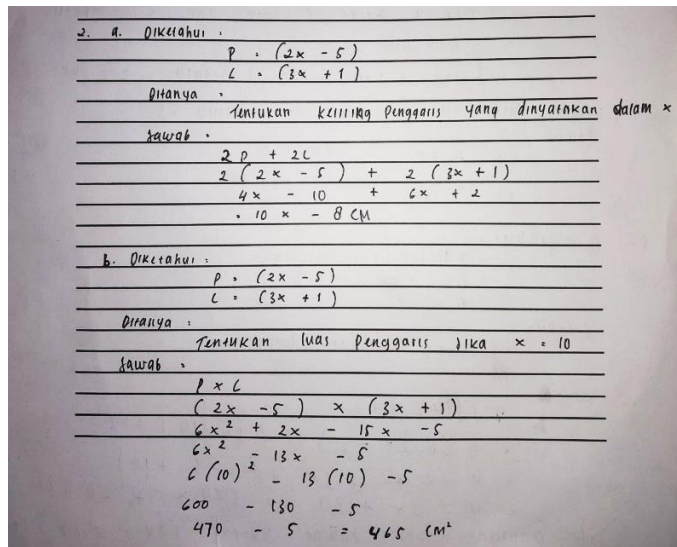 2. a. Diketahui :
P = (2x - 5)
L = (3x + 1)
Ditanya :
Tentukan keliling Penggaris yang dinyatakan dalam x
Jawab :
2P + 2L
2 (2x - 5) + 2 (3x + 1)
4x - 10 + 6x + 2
= 10x - 8 CM
b. Diketahui :
P = (2x - 5)
L = (3x + 1)
Ditanya :
Tentukan luas Penggaris Jika x = 10
Jawab :
P x L
(2x - 5) x (3x + 1)
6x² + 2x - 15x - 5
6x² - 13x - 5
6(10)² - 13(10) - 5
600 - 130 - 5
470 - 5 = 465 cm²